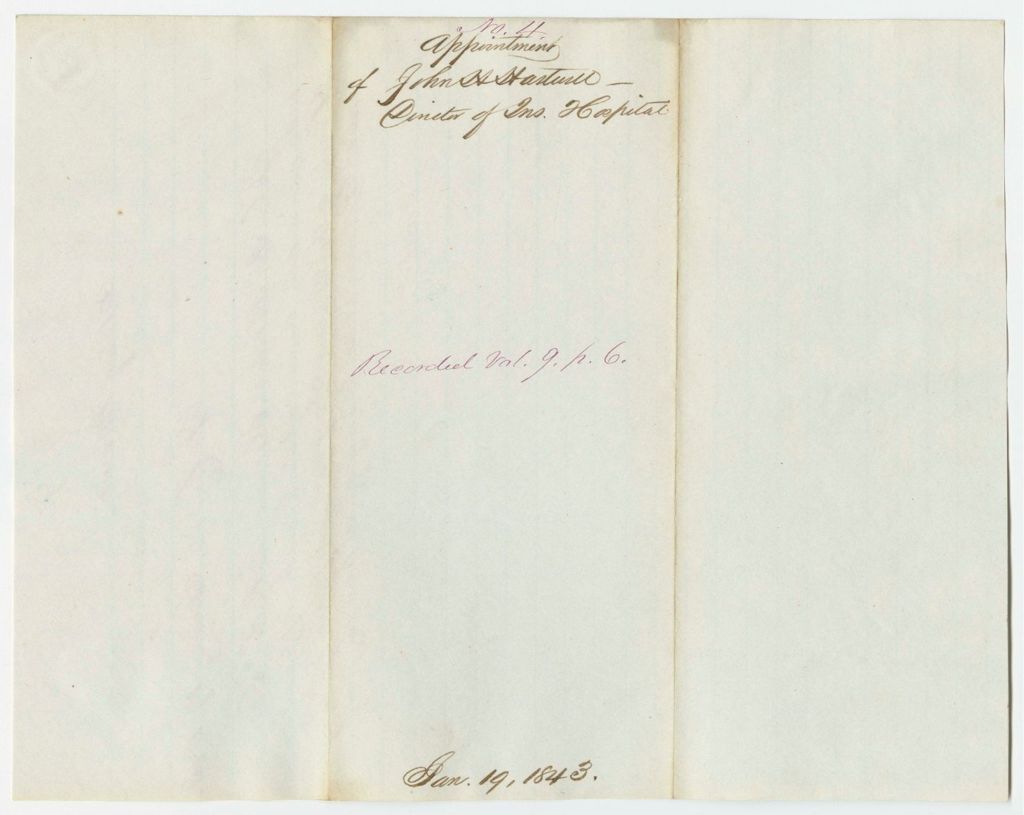 No. 4
Appointment
of John H Hartwell —
Director of Ins. Hospital
Recorded Vol. 9. p. 6.
Jan. 19, 1843.